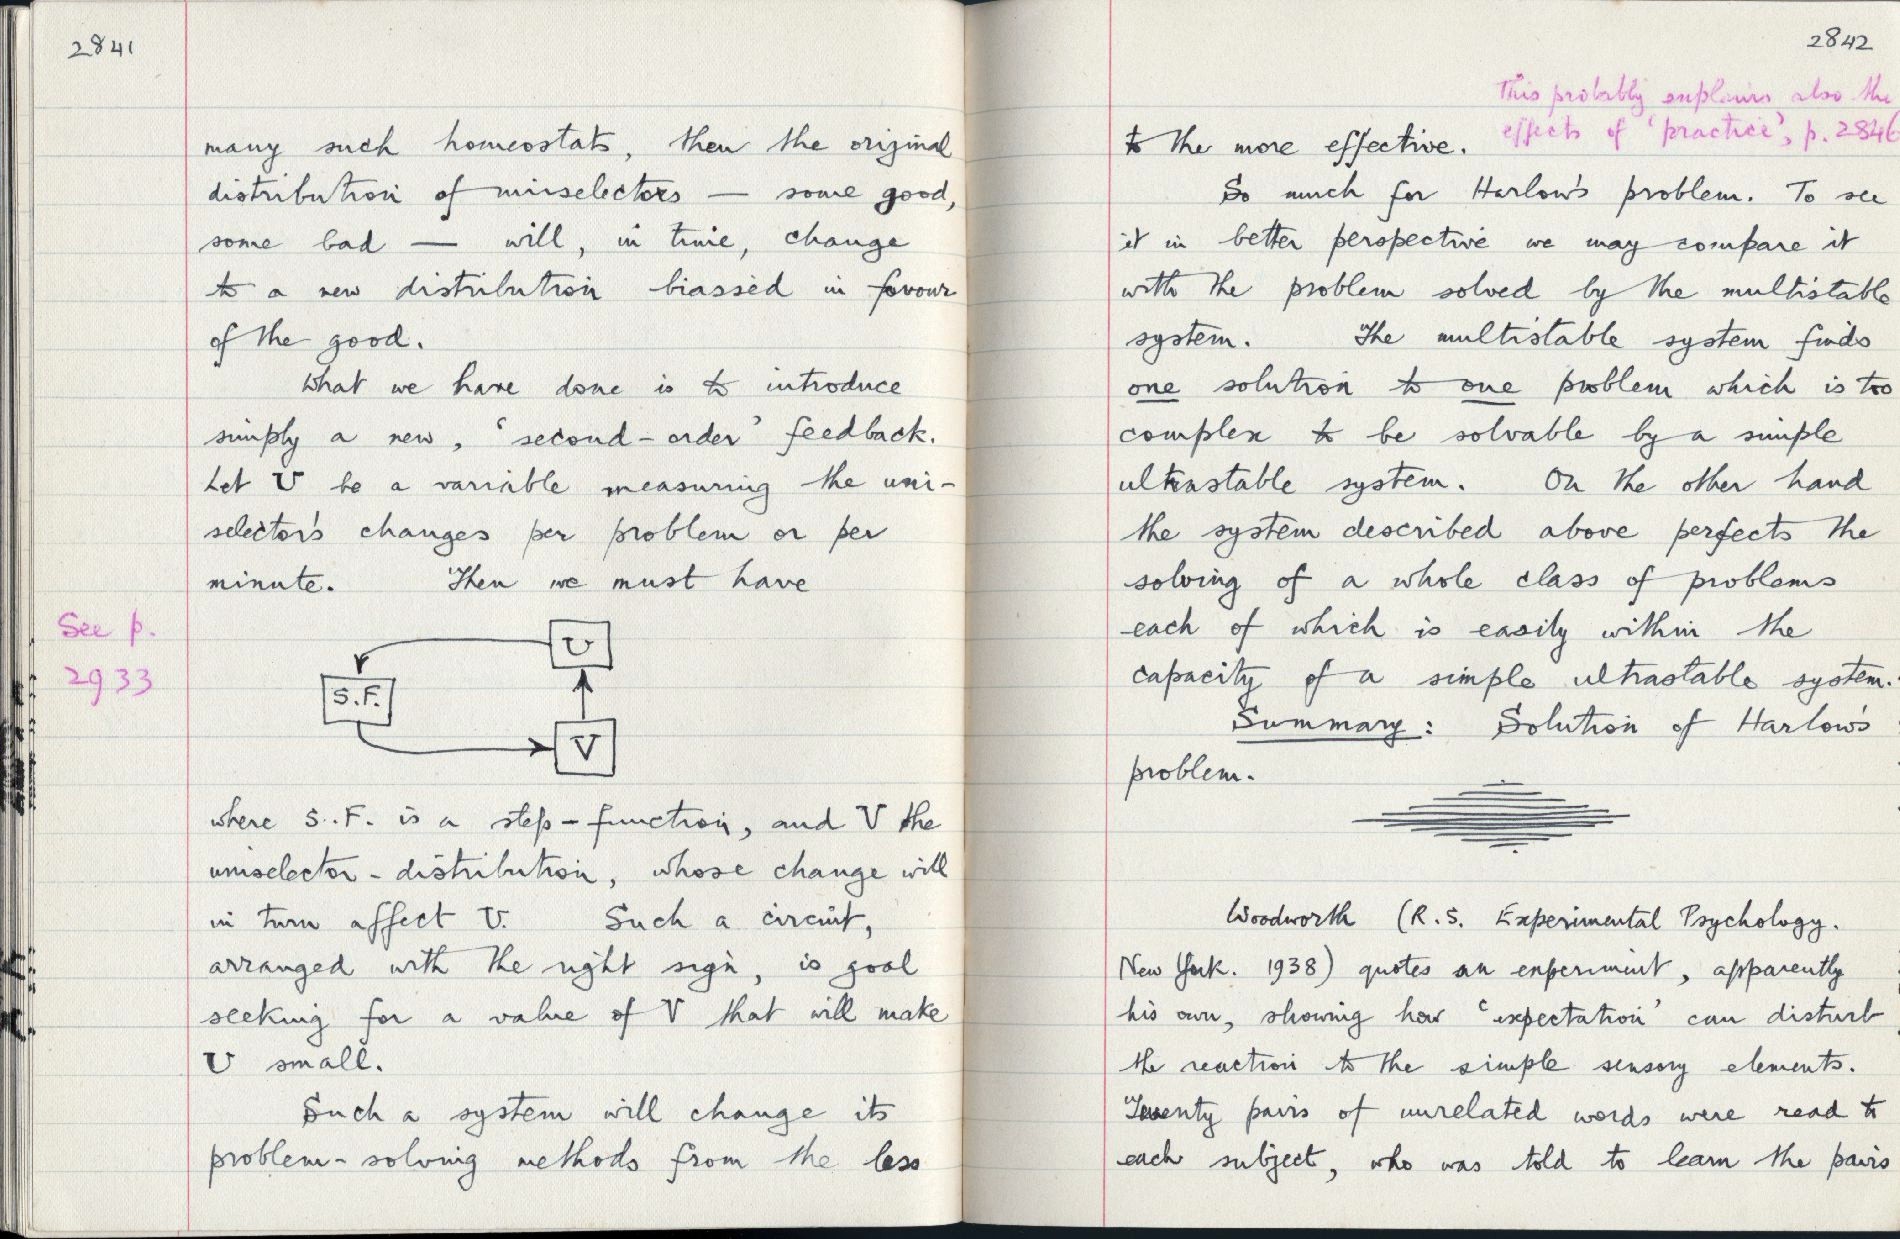 2841
many such homeostats, then the original
distribution of uniselectors — some good,
some bad — will, in time, change
to a new distribution biassed in favour
of the good.
What we have done is to introduce
simply a new, 'second-order' feedback.
Let U be a variable measuring the uni-
selector's changes per problem or per
minute. Then we must have
See p.
2933
U
S.F.
V
where S.F. is a step-function, and V the
uniselector-distribution, whose change will
in turn affect U. Such a circuit,
arranged with the right sign, is goal
seeking for a value of V that will make
U small.
Such a system will change its
problem-solving methods from the less
2842
This probably explains also the
effects of 'practice', p. 2846
to the more effective.
So much for Harlow's problem. To see
it in better perspective we may compare it
with the problem solved by the multistable
system. The multistable system finds
one solution to one problem which is too
complex to be solvable by a simple
ultrastable system. On the other hand
the system described above perfects the
solving of a whole class of problems
each of which is easily within the
capacity of a simple ultrastable system.
Summary: Solution of Harlow's
problem.
Woodworth (R.S. Experimental Psychology.
New York. 1938) quotes an experiment, apparently
his own, showing how 'expectation' can disturb
the reaction to the simple sensory elements.
Twenty pairs of unrelated words were read to
each subject, who was told to learn the pairs